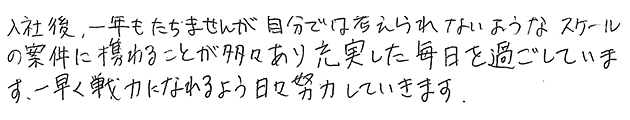 入社後、一年もたちませんが自分では考えられないようなスケール
の案件に携わることが多々あり充実した毎日を過ごしていま
す、一早く戦力になれるよう日々努力していきます.